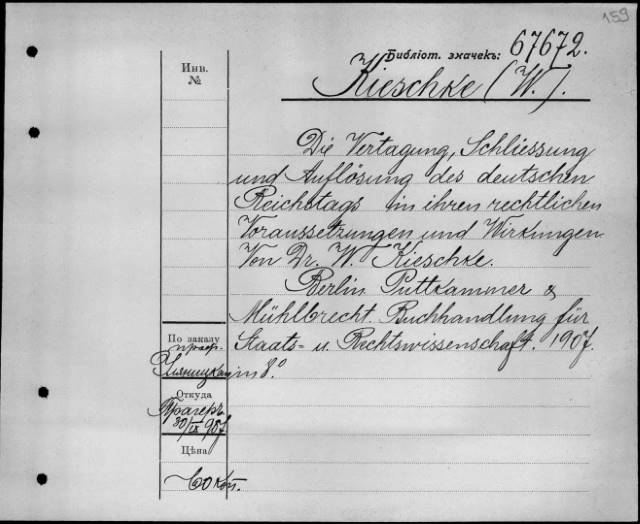 159
Библіот. значекъ: 67672.
Инв.
№
Kieschke (W.).
Die Vertagung, Schliessung
und Auflösung des deutschen
Reichstags in ihren rechtlichen
Voraussetzungen und Wirkungen.
Von Dr. W. Kieschke.
Berlin Puttkammer &
Mühlbrecht. Buchhandlung für
Staats- u. Rechtswissenschaft. 1907.
in 8.º
По заказу
проф.
Откуда
Прагеръ
30/IX 907
Цѣна
60 коп.